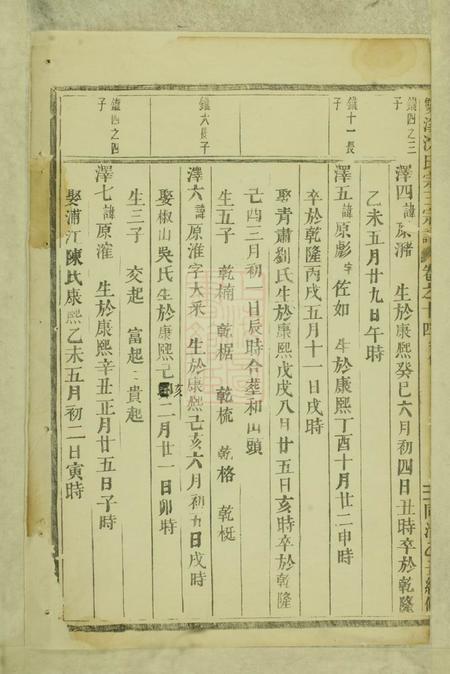 雙溪沈氏宗譜 卷之十四
鐵四之三子
澤四 諱原濳 生於康熙癸巳六月初四日丑時卒於乾隆
乙未五月廿九日午時
鐵十一長子
澤五 諱原彪字佐如 生於康熙丁酉十月廿二申時
卒於乾隆丙戌五月十一日戌時
娶青肅劉氏生於康熙戊戌八月廿五日亥時卒於乾隆
己酉三月初一日辰時合塟和山頭
生五子 乾楠 乾椐 乾梳 乾格 乾梃
鐵六長子
澤六 諱原淮字大采 生於康熙己亥六月初五日戌時
娶椒山吳氏生於康熙己亥二月廿一日卯時
生三子 交起 富起 貴起
鐵四之四子
澤七 諱原漼 生於康熙辛丑正月廿五日子時
娶浦江陳氏康熙乙未五月初二日寅時